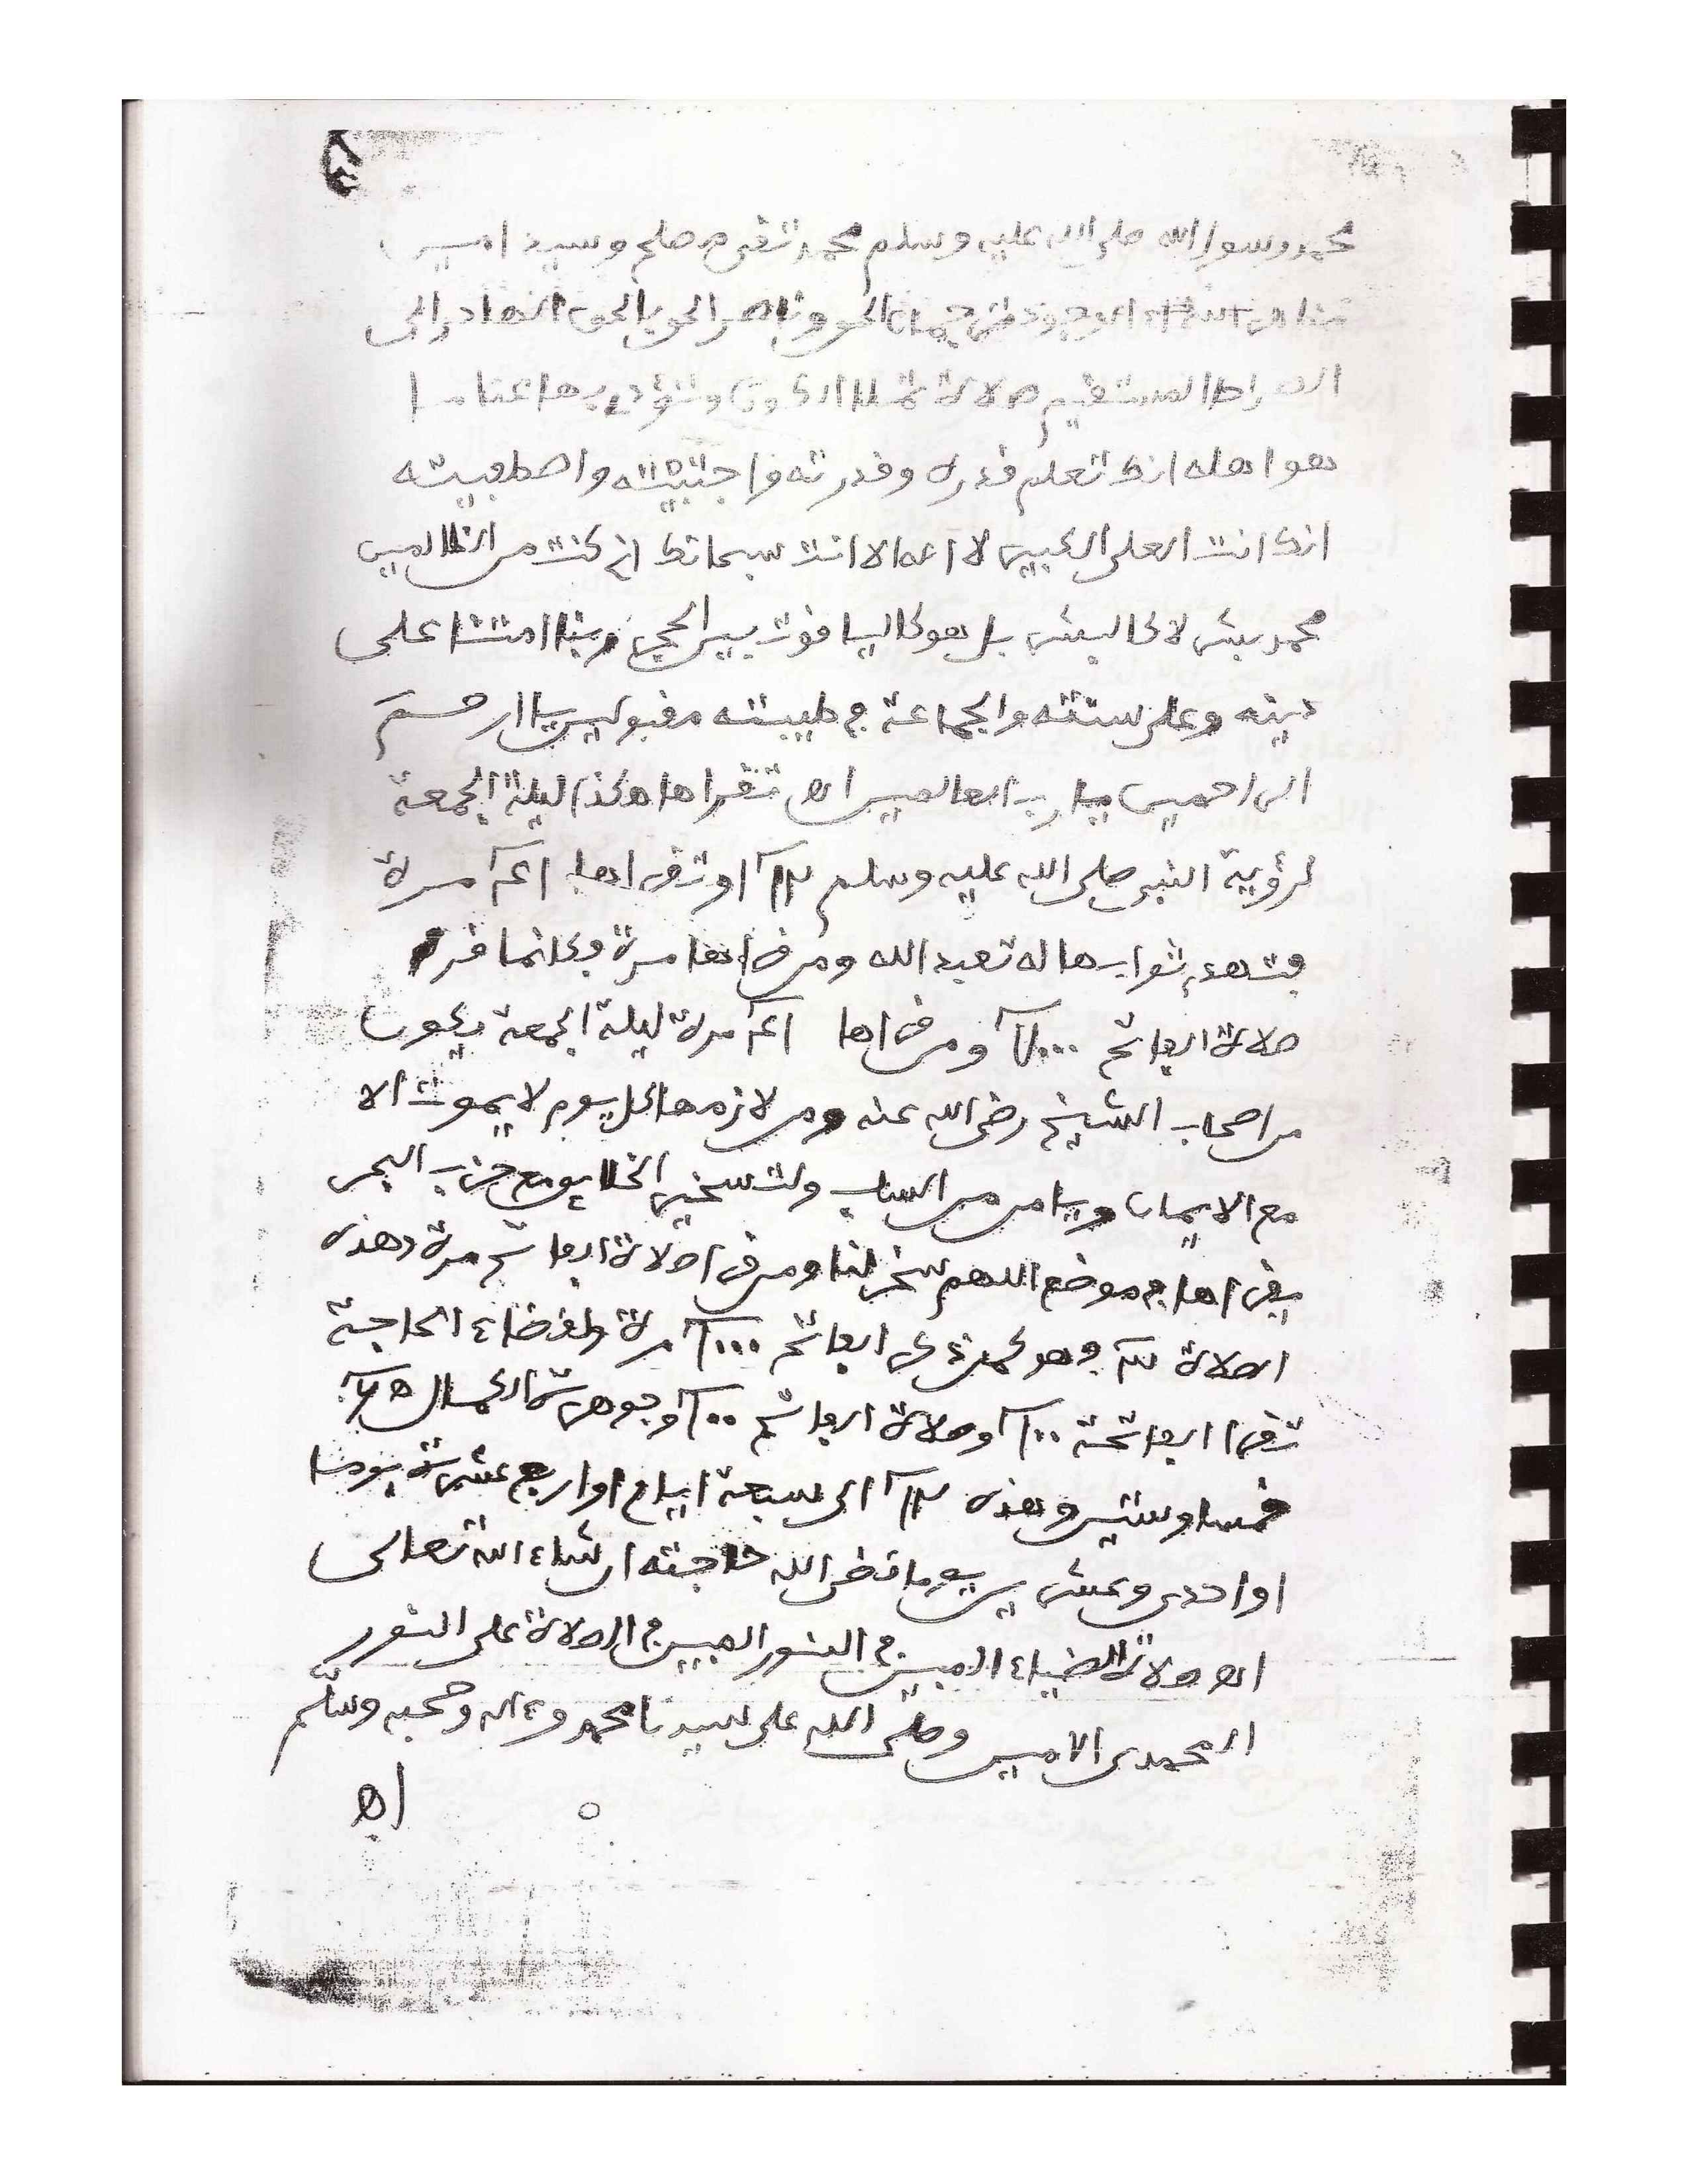 محمد رسول الله صلى الله عليه وسلم محمد تقى صلح وسيد امين
الوجود جمال الحق وناصر الحق بالحق الهادى الى
الصراط المستقيم صلاة تملا الاركون وتؤدى بها عنا ما
هو اهله انك تعلم قدره وقدرته واجتبيته واصطفيته
انك انت العلى الكبير لا اله الا انت سبحانك انى كنت من الظالمين
محمد بشر لا كالبشر بل هو كالياقوت بين الحجر ربنا امتنا على
دينه وعلى سنته والجماعة فى طيبته مقبولين يا ارحم
الراحمين يا رب العالمين اه تقراها هكذا ليلة الجمعة
لرؤية النبى صلى الله عليه وسلم او تقراها مرة
فتهدى ثوابها له تعبد الله ومن قراها مرة فكانما قرا
صلاة الفاتح ومن قراها مرة ليلة الجمعة يكون
من اصحاب الشيخ رضى الله عنه ومن لازمها كل يوم لا يموت الا
مع الايمان ويامن من السلب ولتسخير الخلايق مع حزب البحر
يقراها فى موضع اللهم سخر لنا ومن قرا صلاة الفاتح مرة وهذه
الصلاة الفاتح مرة ولقضاء الحاجة
تقرا الفاتحة ١٠٠ وصلاة الفاتح ١٠٠ وجوهرة الكمال
خمسا وستين وهذه ١٢ الى سبعة ايام او اربع عشرة يوما
او احدى وعشرين يوما قضى الله حاجته ان شاء الله تعالى
اه صلاة الضياء المبين فى النور المبين فى الصلاة على النور
المحمدى الامين وصلى الله على سيدنا محمد وءاله وصحبه وسلم
اه